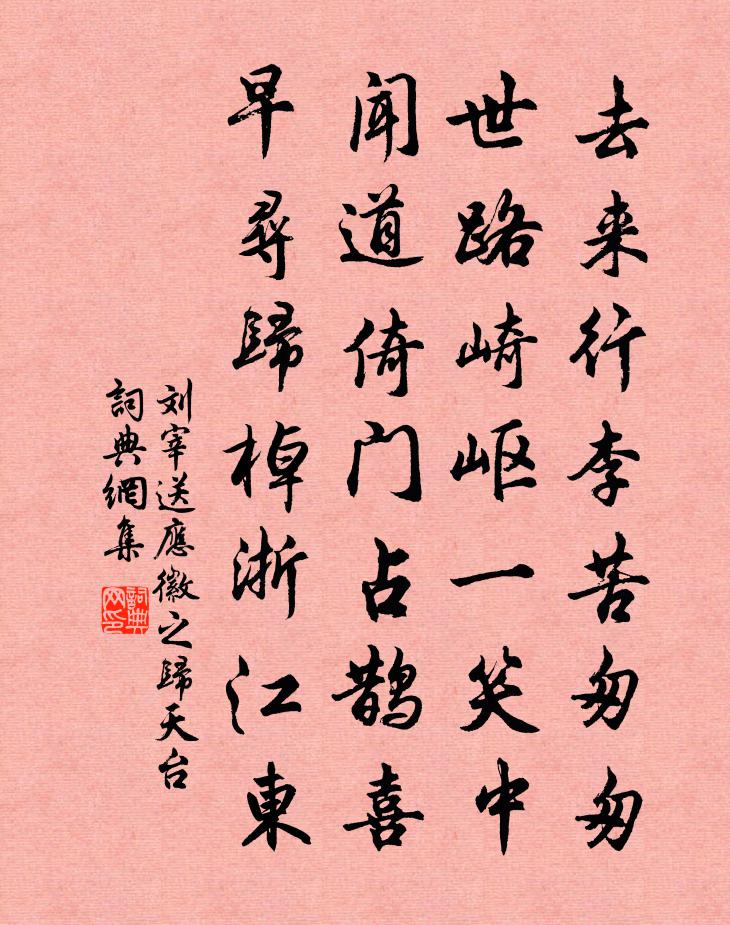 去来行李苦匆匆
世路崎岖一笑中
闻道倚门占鹊喜
早寻歸棹浙江東
刘宰送應徽之歸天台
詞典網集
詞典网印